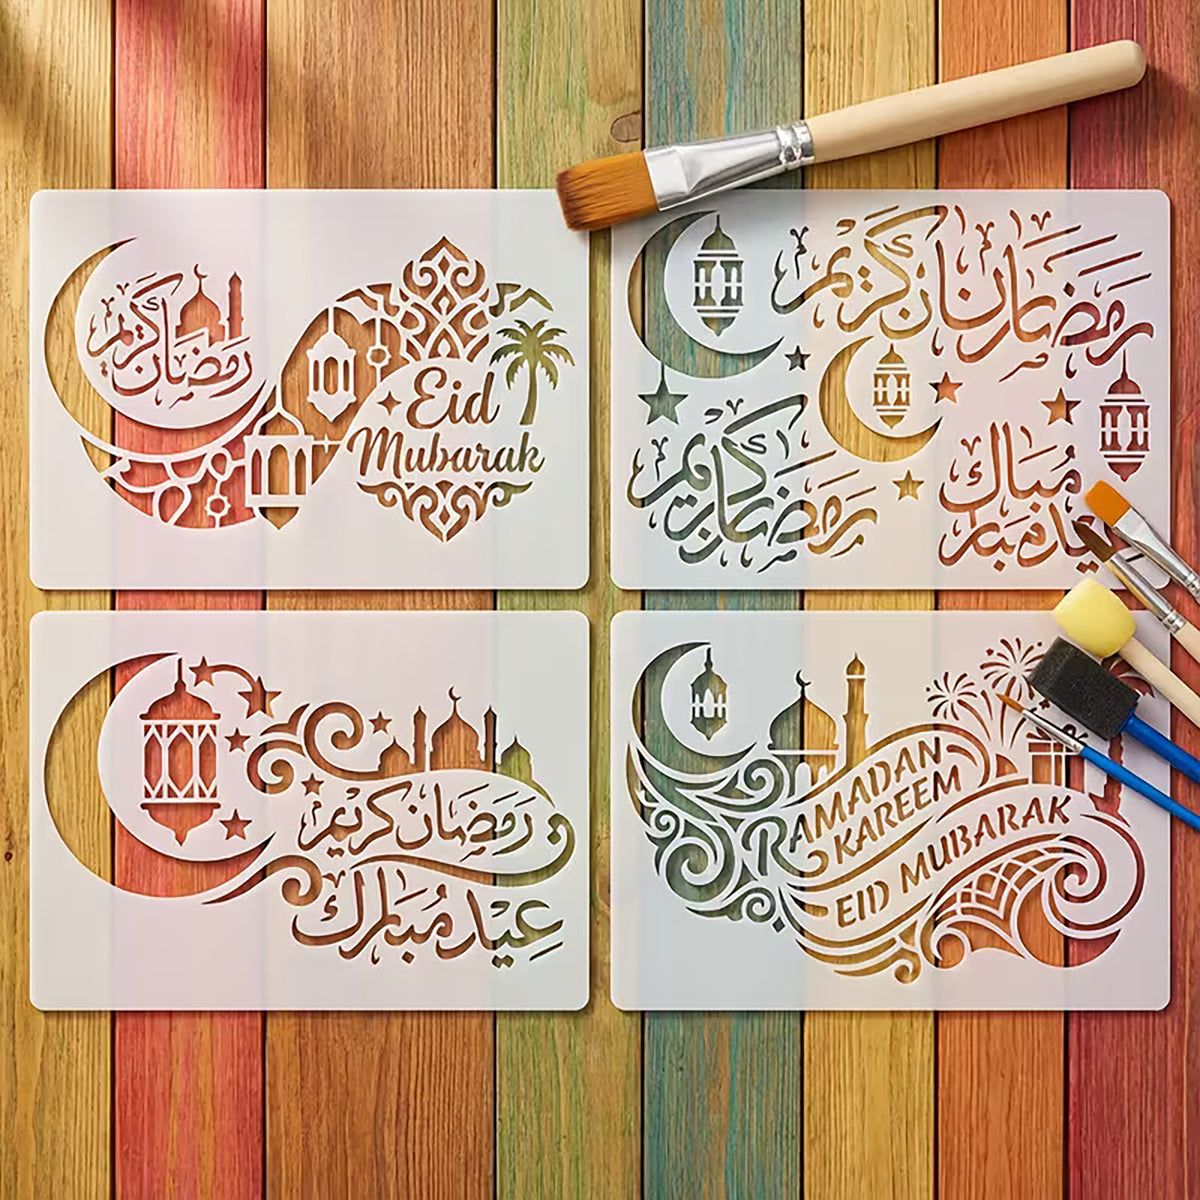 رمضان كريم
Eid
Mubarak
رمضان كريم
رمضان كريم
مُبارك
رَمَضَان كَريْم
عِيْد مُبارك
RAMADAN
KAREEM
EID MUBARAK